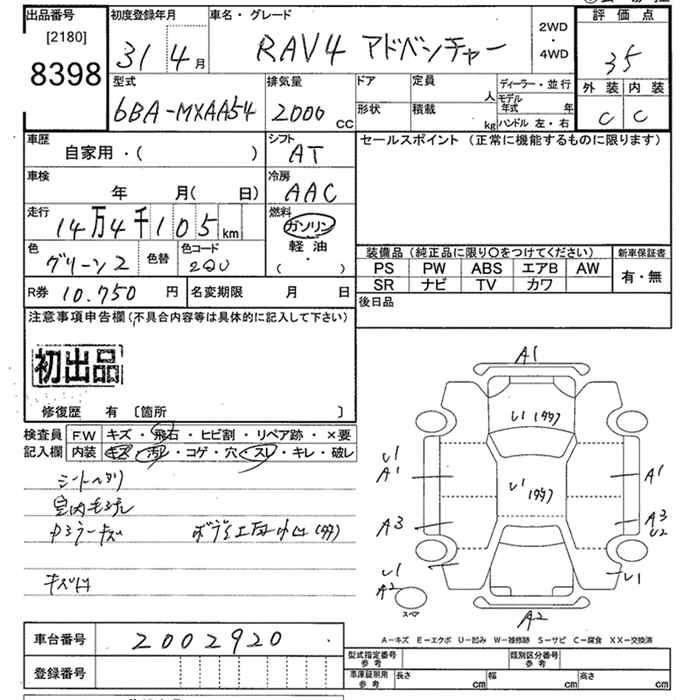 出品番号 初度登録年月 車名・グレード 評価点
[2180] 8398 31 4月 RAV4 アドベンチャー 2WD・4WD 35
型式 排気量 ドア 定員 人 ディーラー・並行 外装 内装
6BA-MXAA54 2000 CC 形状 積載 kg モデル年式 年 ハンドル 左・右 C C
車歴 シフト セールスポイント (正常に機能するものに限ります)
自家用・( ) AT
車検 冷房
年 月( 日) AAC
走行 燃料
14万4千105km ガソリン
色 色替 色コード 軽油 装備品(純正品に限り○をつけてください) 新車保証書
グリーン2 2QU ( ・ ) PS PW ABS エアB AW 有・無
SR ナビ TV カワ
R券 10.750 円 名変期限 月 日 後日品
注意事項申告欄(不具合内容等は具体的に記入して下さい)
初出品
修復歴 有 〔箇所 〕
検査員 F.W キズ・飛石・ヒビ割・リペア跡・×要
記入欄 内装 キズ・汚レ・コゲ・穴・スレ・キレ・破レ
シートヘタリ
キズ凹
A1
U1
U1
U1
A1
A1
A3
A3
U2
U1
A2
U1
スペア
A2
A-キズ E-エクボ U-凹み W-補修跡 S-サビ C-腐食 XX-交換済
車台番号 2002920
型式指定番号 参考 類別区分番号 参考
登録番号 車庫証明用 参考 長さ cm 幅 cm 高さ cm